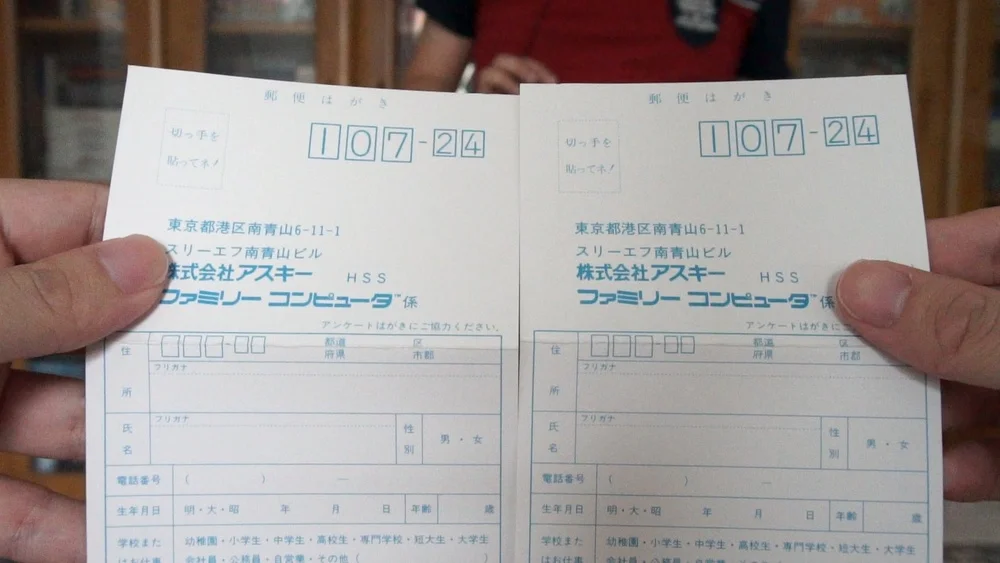 郵便はがき
切っ手を
貼ってネ!
107-24
東京都港区南青山6-11-1
スリーエフ南青山ビル
株式会社アスキー HSS
ファミリー コンピュータ™係
アンケートはがきにご協力ください。
住所
都道府県
区市郡
フリガナ
氏名
フリガナ
性別
男・女
電話番号 ( ) —
生年月日 明・大・昭 年 月 日 年齢 歳
学校また 幼稚園・小学生・中学生・高校生・専門学校・短大生・大学生
はお仕事 会社員・公務員・自営業・その他( )
郵便はがき
切っ手を
貼ってネ!
107-24
東京都港区南青山6-11-1
スリーエフ南青山ビル
株式会社アスキー HSS
ファミリー コンピュータ™係
アンケートはがきにご
住所
都道府県
区市郡
フリガナ
氏名
フリガナ
性別
男・女
電話番号 ( ) —
生年月日 明・大・昭 年 月 日 年齢 歳
学校また 幼稚園・小学生・中学生・高校生・専門学校・短大生・大学生
はお仕事 会社員・公務員・自営業・その他( )